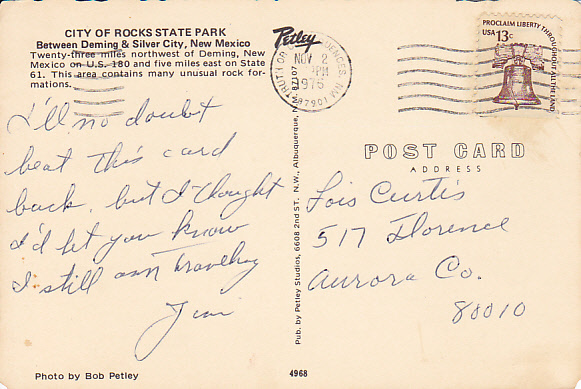 CITY OF ROCKS STATE PARK
Between Deming & Silver City, New Mexico
Twenty-three miles northwest of Deming, New
Mexico on U.S. 180 and five miles east on State
61. This area contains many unusual rock for-
mations.
I'll no doubt
beat this card
back, but I thought
I'd let you know
I still am traveling
Jim
Photo by Bob Petley
Petley
Pub. by Petley Studios, 6608 2nd ST. N.W., Albuquerque, N.M. 87107
4968
TRUTH OR CONSEQUENCES, NM
NOV 2
PM
1975
87901
PROCLAIM LIBERTY THROUGHOUT ALL THE LAND
USA 13c
POST CARD
ADDRESS
Lois Curtis
517 Florence
Aurora Co.
80010